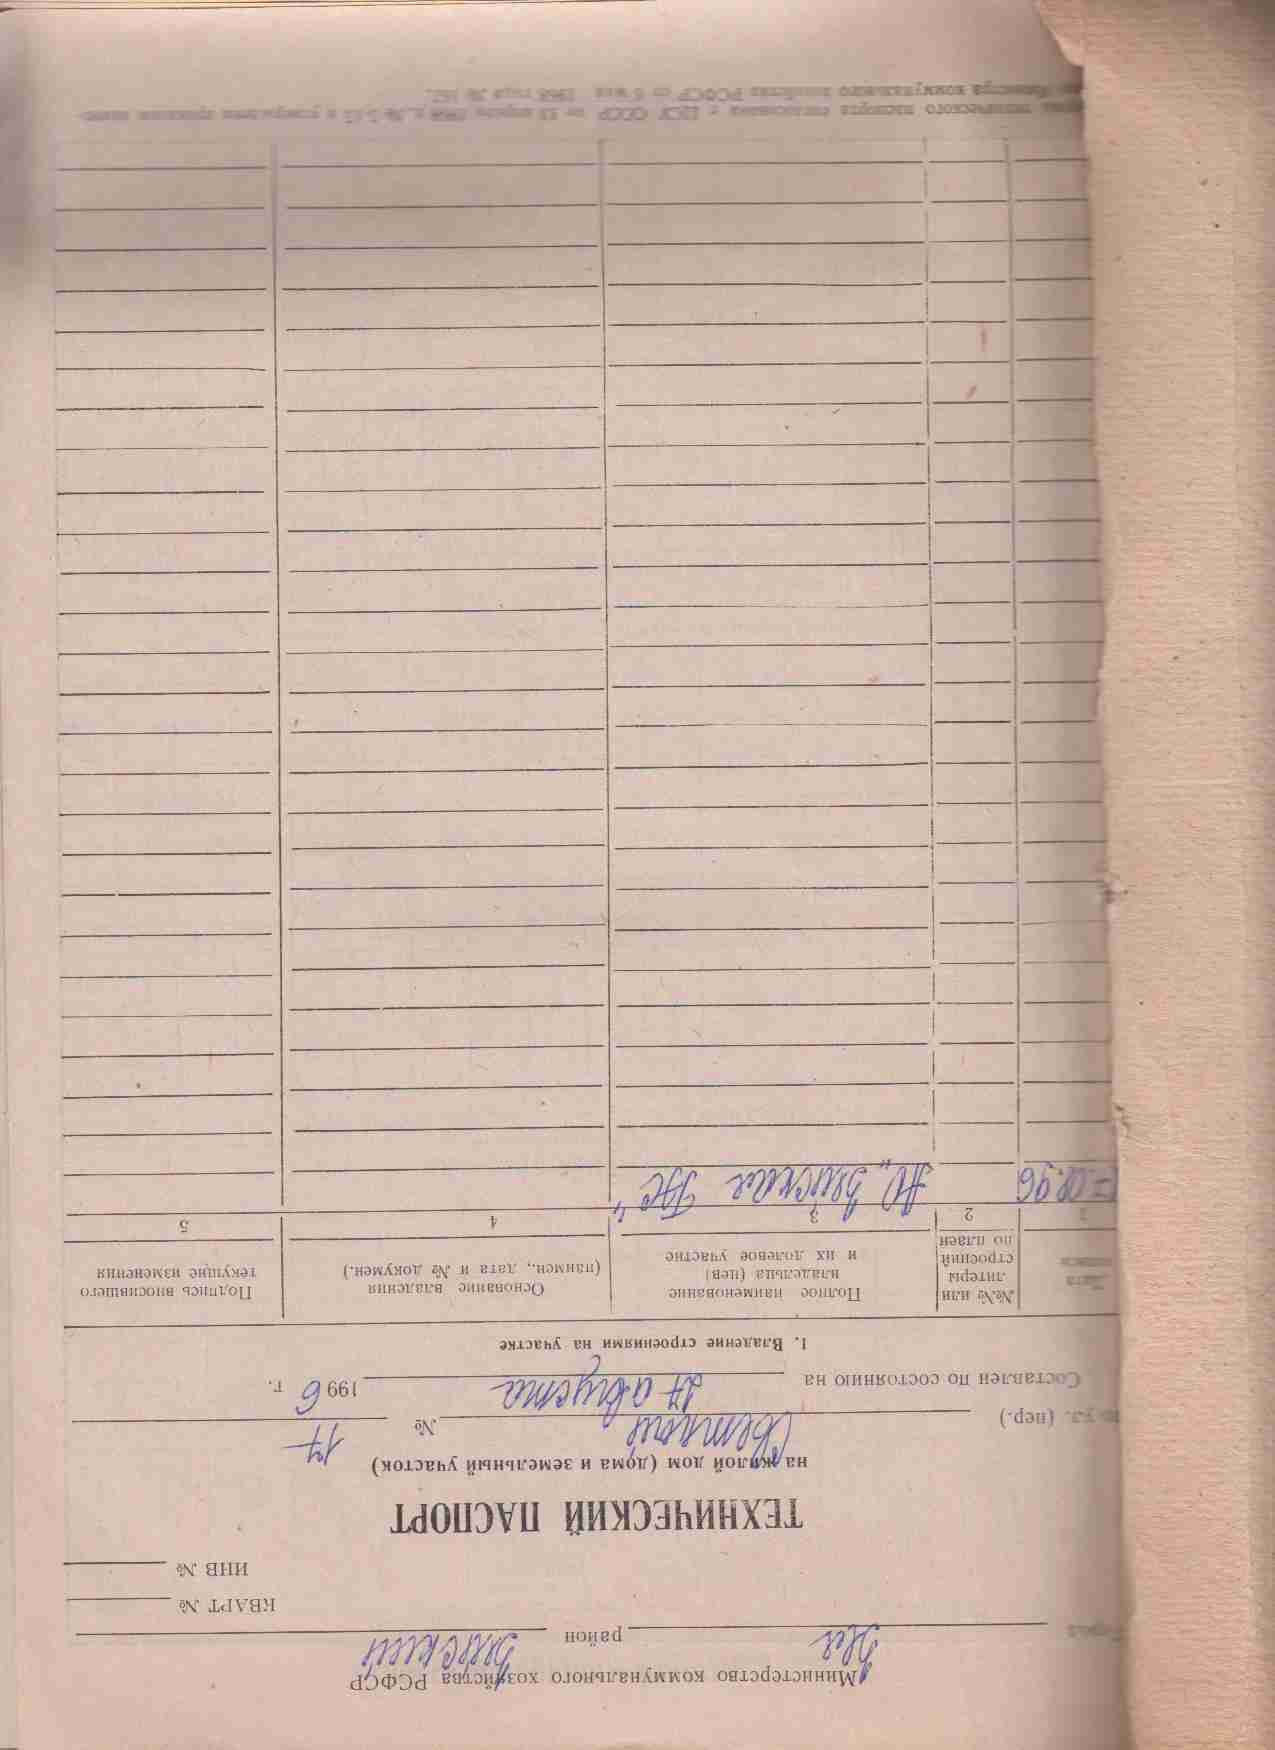 Министерство коммунального хозяйства РСФСР
Город Зея район Зейский
КВАРТ №
ИНВ №
ТЕХНИЧЕСКИЙ ПАСПОРТ
на жилой дом (дома и земельный участок)
по ул. (пер.) Светлой № 17
Составлен по состоянию на 27 августа 1996 г.
1. Владение строениями на участке
Дата записи
№№ или литеры строений по плану
Полное наименование владельца (цев) и их долевое участие
Основание владения (наимен., дата и № докумен.)
Подпись вносившего текущие изменения
1 2 3 4 5
08.96 „Зейская ГЭС"
технического паспорта согласована с ЦСУ СССР от 13 апреля 1968 г. № и утверждена приказом
Министра коммунального хозяйства РСФСР от 6 мая 1968 года № 167.